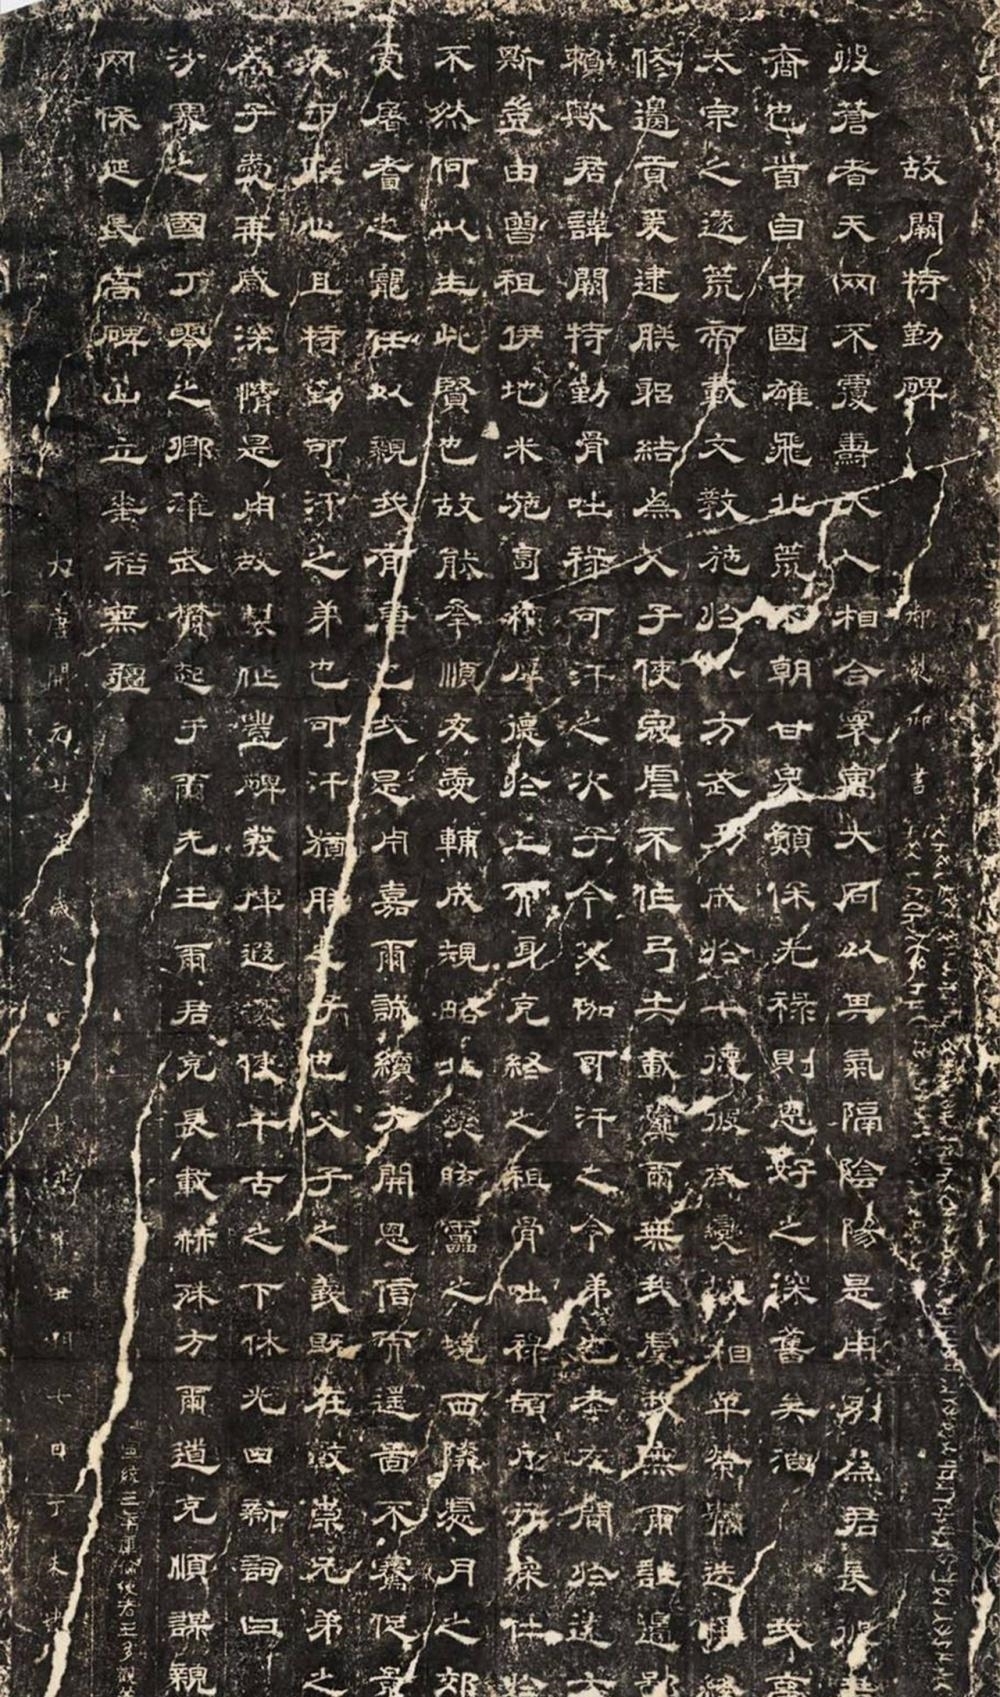 故闕特勤碑
御製御書
彼蒼者天罔不覆燾天人相合寰寓大同以其氣隔陰陽是用別為君長彼君
裔也首自中國雄飛北荒來朝甘泉願保光祿則恩好之深舊矣洎 我高
太宗之遂荒帝載文教施於八方武功成於七德彼或變故相革榮號迭稱終
修邊貢爰逮朕躬結為父子使寇虐不作弓矢載櫜爾無我虞我無爾詐邊鄙
賴歟君諱闕特勤骨咄祿可汗之次子今苾伽可汗之令弟也孝友聞於遠方
斯豈由曾祖伊地米施匐積厚德於上而身克終之祖骨咄祿頡斤行深仁於
不然何以生此賢也故能承順友愛輔成規略北燮眩靁之境西鄰處月之郊
爰屠耆之寵任以親我有唐也我是用嘉爾誠績大開恩信而遙圖不騫促景
疚于朕心且特勤可汗之弟也可汗猶朕之子也父子之義既在敦崇兄弟之
為子愛再感深情是用故製作豐碑發揮遐壤使千古之下休光日新詞曰
沙塞之國丁零之鄉雄武鬱起于爾先王爾君克長載赫殊方爾道克順謀親
罔保延長高碑山立垂裕無疆
宣統三年庫倫使者三多觀
大唐開元廿年歲次壬申十月辛丑朔七日丁未建